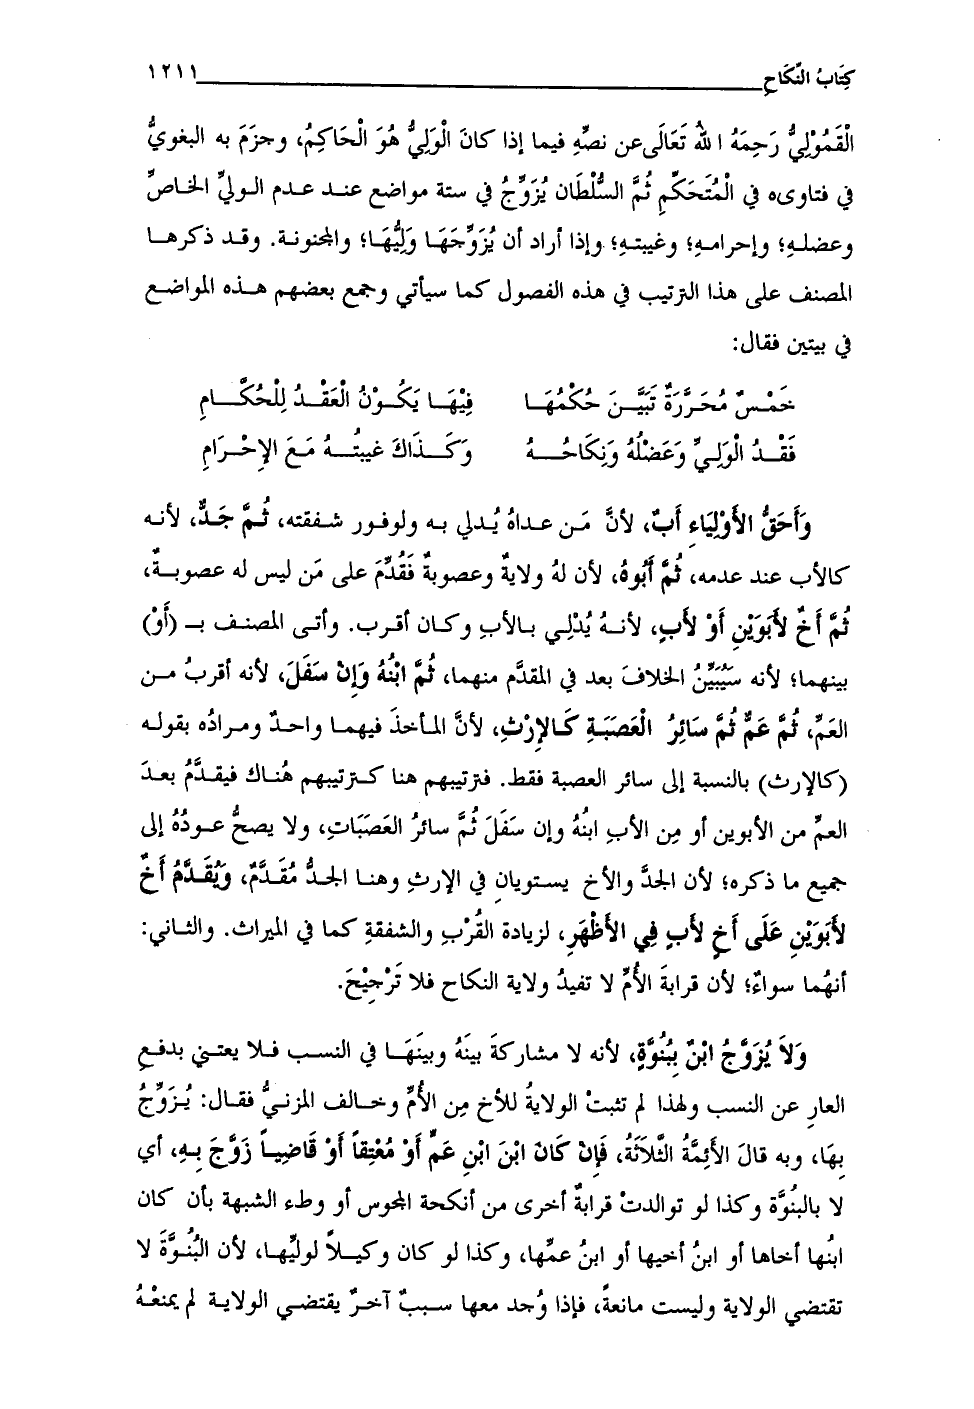 كِتَابُ النِّكَاحِ ١٢١١
الْقَمُوْلِيُّ رَحِمَهُ اللهُ تَعَالَى عن نصِّهِ فيما إذا كانَ الْوَلِيُّ هُوَ الْحَاكِمُ، وحزَمَ به البغويُّ
في فتاويه في الْمُتَحَكِّمِ ثُمَّ السُّلْطَان يُزَوِّجُ في ستة مواضع عند عدم الوليِّ الخاصِّ
وعضلهِ؛ وإحرامهِ؛ وغيبتهِ؛ وإذا أراد أن يُزَوِّجَهَا وَلِيُّهَا؛ والمجنونة. وقد ذكرها
المصنف على هذا الترتيب في هذه الفصول كما سيأتي وجمع بعضهم هذه المواضع
في بيتين فقال:
خَمْسٌ مُحَرَّرَةٌ تَبَيَّنَ حُكْمُهَا فِيْهَا يَكُوْنُ الْعَقْدُ لِلْحُكَّامِ
فَقْدُ الْوَلِيِّ وَعَضْلُهُ وَنِكَاحُهُ وَكَذَاكَ غيبتُهُ مَعَ الإِحْرَامِ
وَأَحَقُّ الأَوْلِيَاءِ أَبٌ، لأنَّ مَن عداهُ يُدلي به ولوفور شفقته، ثُمَّ جَدٌّ، لأنه
كالأب عند عدمه، ثُمَّ أَبُوهُ، لأن لهُ ولايةٌ وعصوبةٌ فَقُدِّمَ على مَن ليس له عصوبةٌ،
ثُمَّ أَخٌ لأَبَوَيْنِ أَوْ لأَبٍ، لأنهُ يُدْلِي بالأبِ وكان أقرب. وأتى المصنف بـ (أَوْ)
بينهما؛ لأنه سَيُبَيِّنُ الخلافَ بعد في المقدَّم منهما، ثُمَّ ابْنُهُ وَإِنْ سَفَلَ، لأنه أقربُ من
العَمِّ، ثُمَّ عَمٌّ ثُمَّ سَائِرُ الْعَصَبَةِ كَالإِرْثِ، لأنَّ المأخذَ فيهما واحدٌ ومرادُه بقوله
(كالإرث) بالنسبة إلى سائر العصبة فقط. فترتيبهم هنا كترتيبهم هُناك فيقدَّمُ بعدَ
العمِّ من الأبوين أو مِن الأبِ ابنُهُ وإن سَفَلَ ثُمَّ سائرُ العَصَبَاتِ، ولا يصحُّ عودُهُ إلى
جميع ما ذكره؛ لأن الجدَّ والأخ يستويانِ في الإرثِ وهنا الجدُّ مُقَدَّمٌ، وَيُقَدَّمُ أَخٌ
لأَبَوَيْنِ عَلَى أَخٍ لأَبٍ فِي الأَظْهَرِ، لزيادة القُرْبِ والشفقةِ كما في الميراث. والثاني:
أنهُما سواءٌ؛ لأن قرابةَ الأُمِّ لا تفيدُ ولاية النكاح فلا تَرْجِيْحَ.
وَلاَ يُزَوِّجُ ابْنٌ بِبُنُوَّةٍ، لأنه لا مشاركةَ بينَهُ وبينَهَا في النسب فلا يعتني بدفع
العارِ عن النسب ولهذا لم تثبتْ الولايةُ للأخِ مِن الأُمِّ وخالف المزنيُّ فقال: يُزَوِّجُ
بِهَا، وبه قالَ الأَئِمَّةُ الثَّلاَثَةُ، فَإِنْ كَانَ ابْنَ ابْنِ عَمٍّ أَوْ مُعْتِقاً أَوْ قَاضِياً زَوَّجَ بِهِ، أي
لا بالبُنُوَّة وكذا لو توالدتْ قرابةٌ أخرى من أنكحة المجوس أو وطء الشبهة بأن كان
ابنُها أخاها أو ابنُ أخيها أو ابنُ عمِّها، وكذا لو كان وكيلاً لوليِّها، لأن البُنُوَّةَ لا
تقتضي الولاية وليست مانعةً، فإذا وُجد معها سببٌ آخرُ يقتضي الولاية لم يمنعْهُ